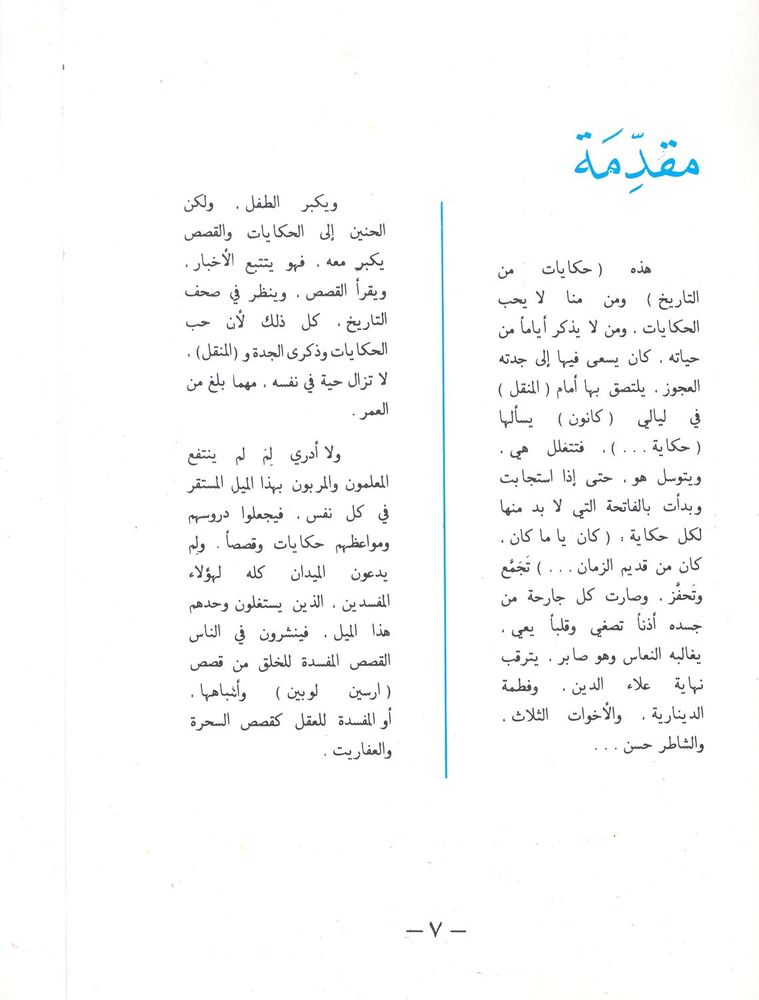 مقدِّمَة
هذه ( حكايات من
التاريخ ) ومن منا لا يحب
الحكايات ، ومن لا يذكر أياماً من
حياته ، كان يسعى فيها إلى جدته
العجوز ، يلتصق بها أمام ( المنقل )
في ليالي ( كانون ) يسألها
( حكاية . . . ) ، فتتغلل هي ،
ويتوسل هو ، حتى إذا استجابت
وبدأت بالفاتحة التي لا بد منها
لكل حكاية : ( كان يا ما كان ،
كان من قديم الزمان . . . ) تَجَمَّع
وتَحفَّز ، وصارت كل جارحة من
جسده أذناً تصغي وقلباً يعي ،
يغالبه النعاس وهو صابر ، يترقب
نهاية علاء الدين ، وفطمة
الدينارية ، والأخوات الثلاث ،
والشاطر حسن . . .
ويكبر الطفل ، ولكن
الحنين إلى الحكايات والقصص
يكبر معه ، فهو يتتبع الأخبار ،
ويقرأ القصص ، وينظر في صحف
التاريخ ، كل ذلك لأن حب
الحكايات وذكرى الجدة و ( المنقل ) ،
لا تزال حية في نفسه ، مهما بلغ من
العمر .
ولا أدري لِمَ لم ينتفع
المعلمون والمربون بهذا الميل المستقر
في كل نفس ، فيجعلوا دروسهم
ومواعظهم حكايات وقصصاً . ولِم
يدعون الميدان كله لهؤلاء
المفسدين ، الذين يستغلون وحدهم
هذا الميل ، فينشرون في الناس
القصص المفسدة للخلق من قصص
( ارسين لوبين ) وأشباهها ،
أو المفسدة للعقل كقصص السحرة
والعفاريت .
— ٧ —